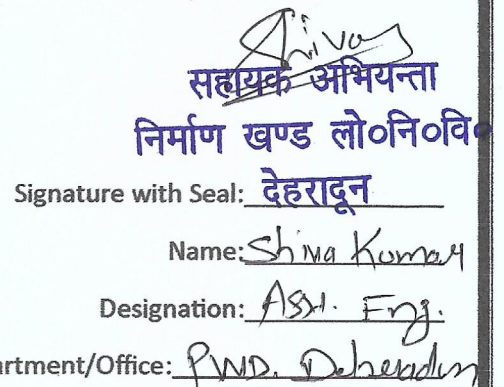 Shiva
सहायक अभियन्ता
निर्माण खण्ड लो०नि०वि०
Signature with Seal: देहरादून
Name: Shiva Kumar
Designation: Asst. Eng.
artment/Office: PWD. Dehradun